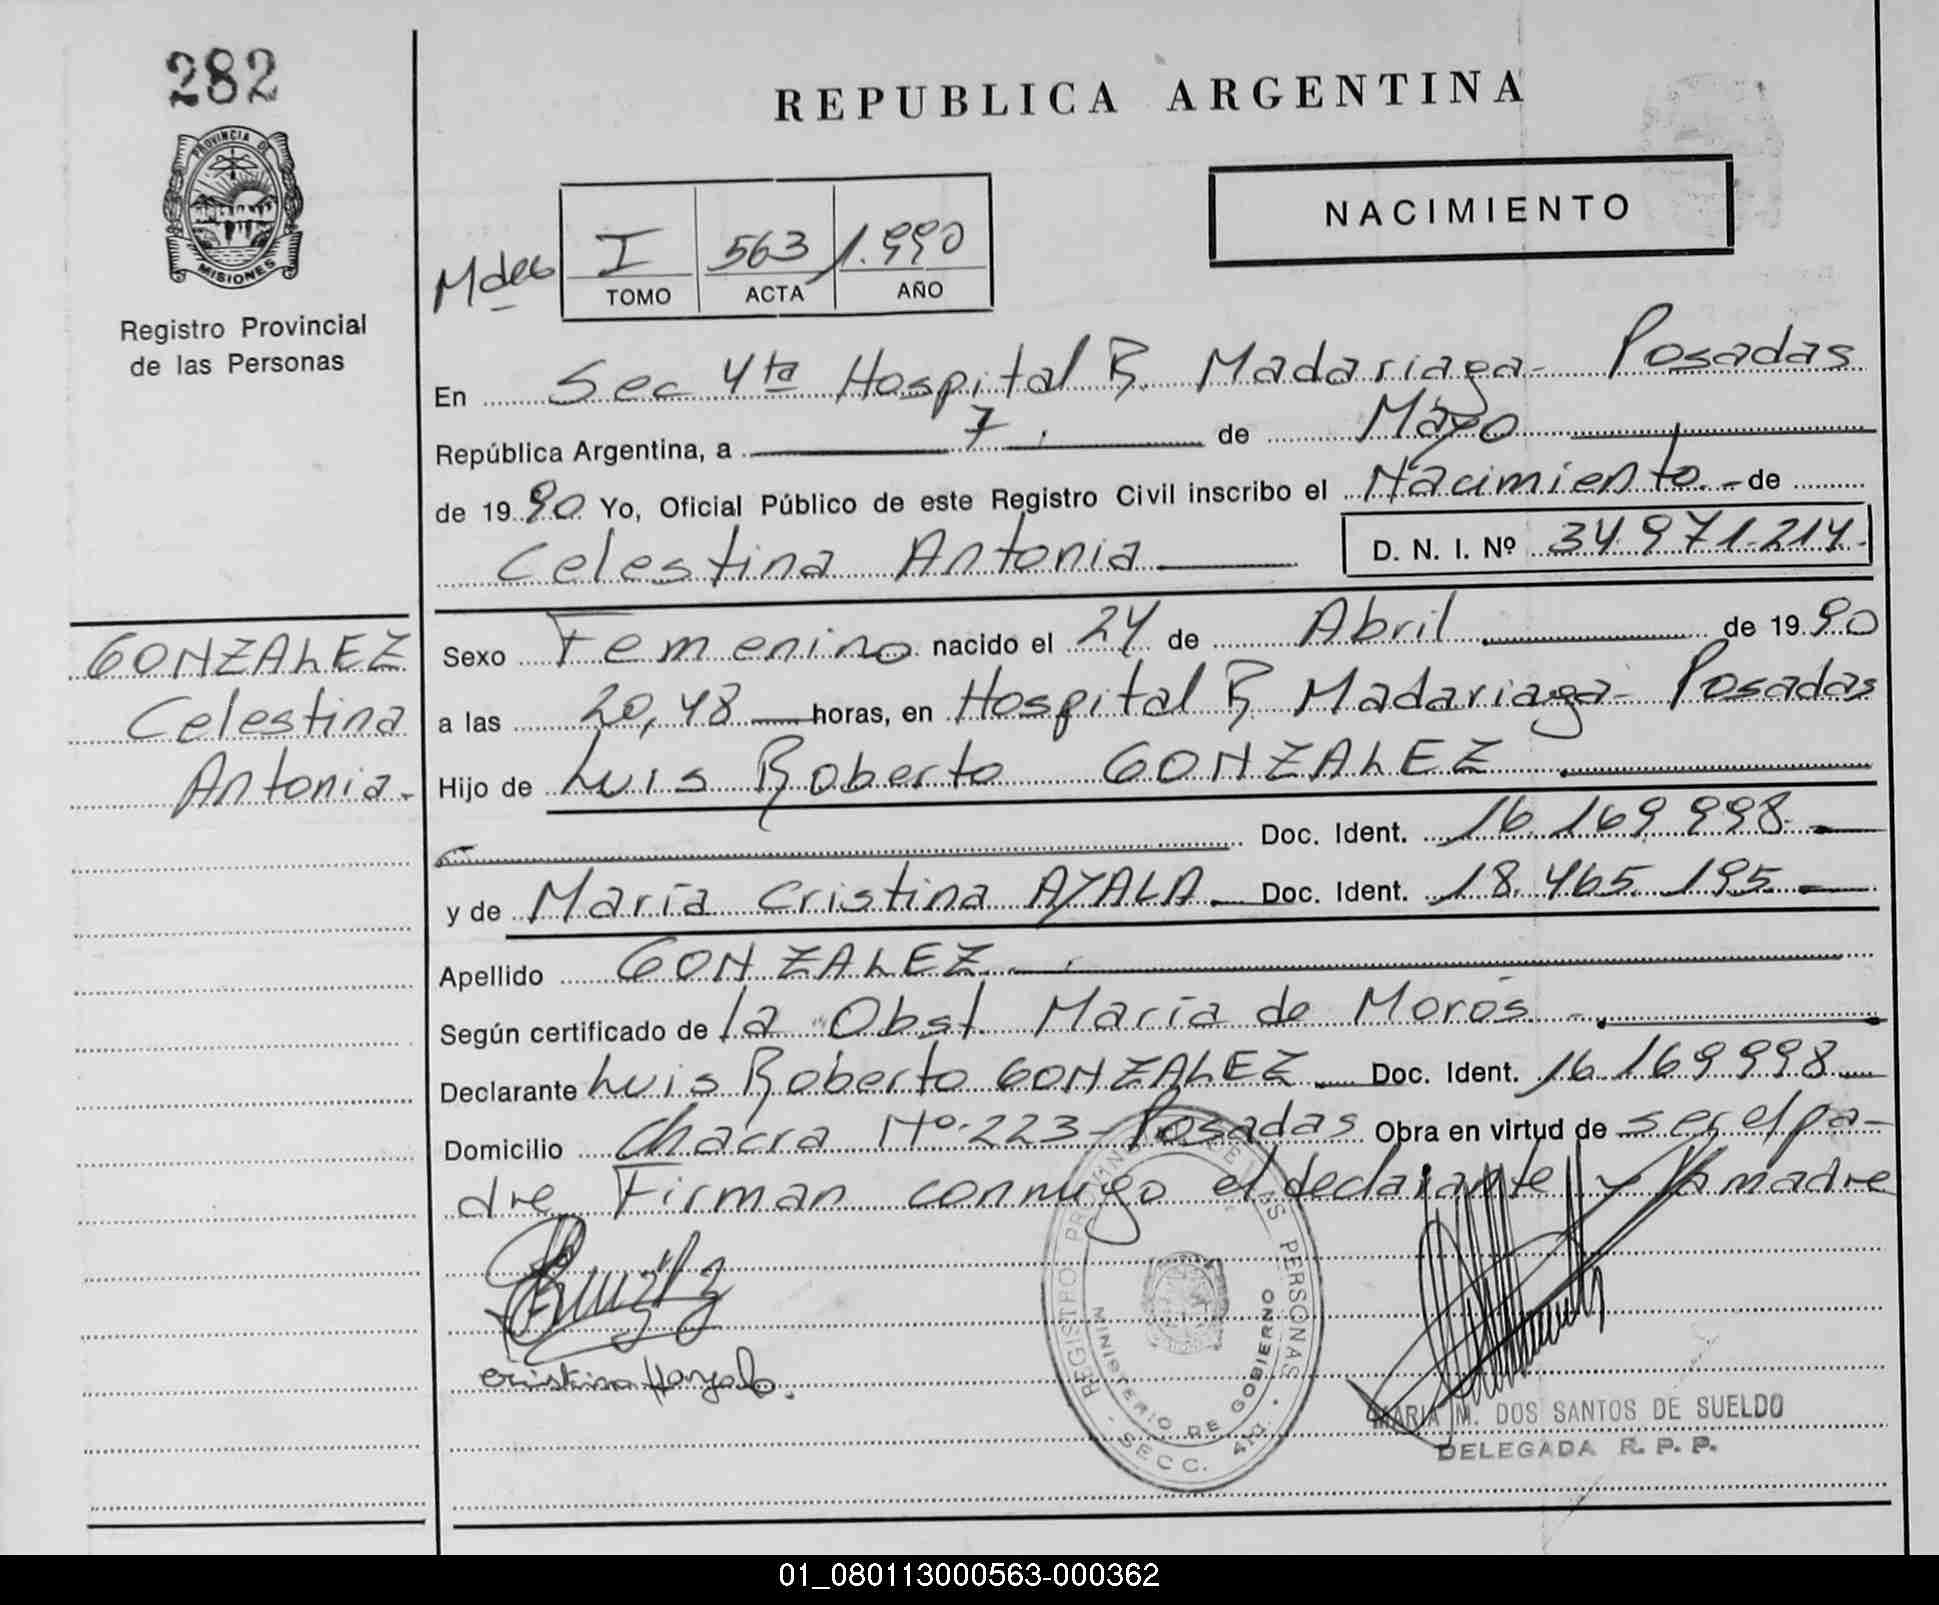 282
PROVINCIA DE
MISIONES
Registro Provincial
de las Personas
REPUBLICA ARGENTINA
NACIMIENTO
I 563 1.990
TOMO ACTA AÑO
En Sec 4ta Hospital R. Madariaga - Posadas
República Argentina, a 7 de Mayo
de 1990 Yo, Oficial Público de este Registro Civil inscribo el Nacimiento - de
Celestina Antonia
D. N. I. Nº 34.971.214.
GONZALEZ
Celestina
Antonia.
Sexo Femenino nacido el 24 de Abril de 1990
a las 20,48 horas, en Hospital R. Madariaga - Posadas
Hijo de Luis Roberto GONZALEZ
Doc. Ident. 16.169.998.
y de María Cristina AYALA. Doc. Ident. 18.465.195.
Apellido GONZALEZ
Según certificado de la Obst. María de Morós
Declarante Luis Roberto GONZALEZ Doc. Ident. 16.169.998
Domicilio Chacra Nº 223 - Posadas Obra en virtud de ser el pa-
dre Firman conmigo el declarante y la madre
REGISTRO PROVINCIAL DE LAS PERSONAS
MINISTERIO DE GOBIERNO
SECC. 4ta.
MARIA M. DOS SANTOS DE SUELDO
DELEGADA R. P. P.
01_080113000563-000362